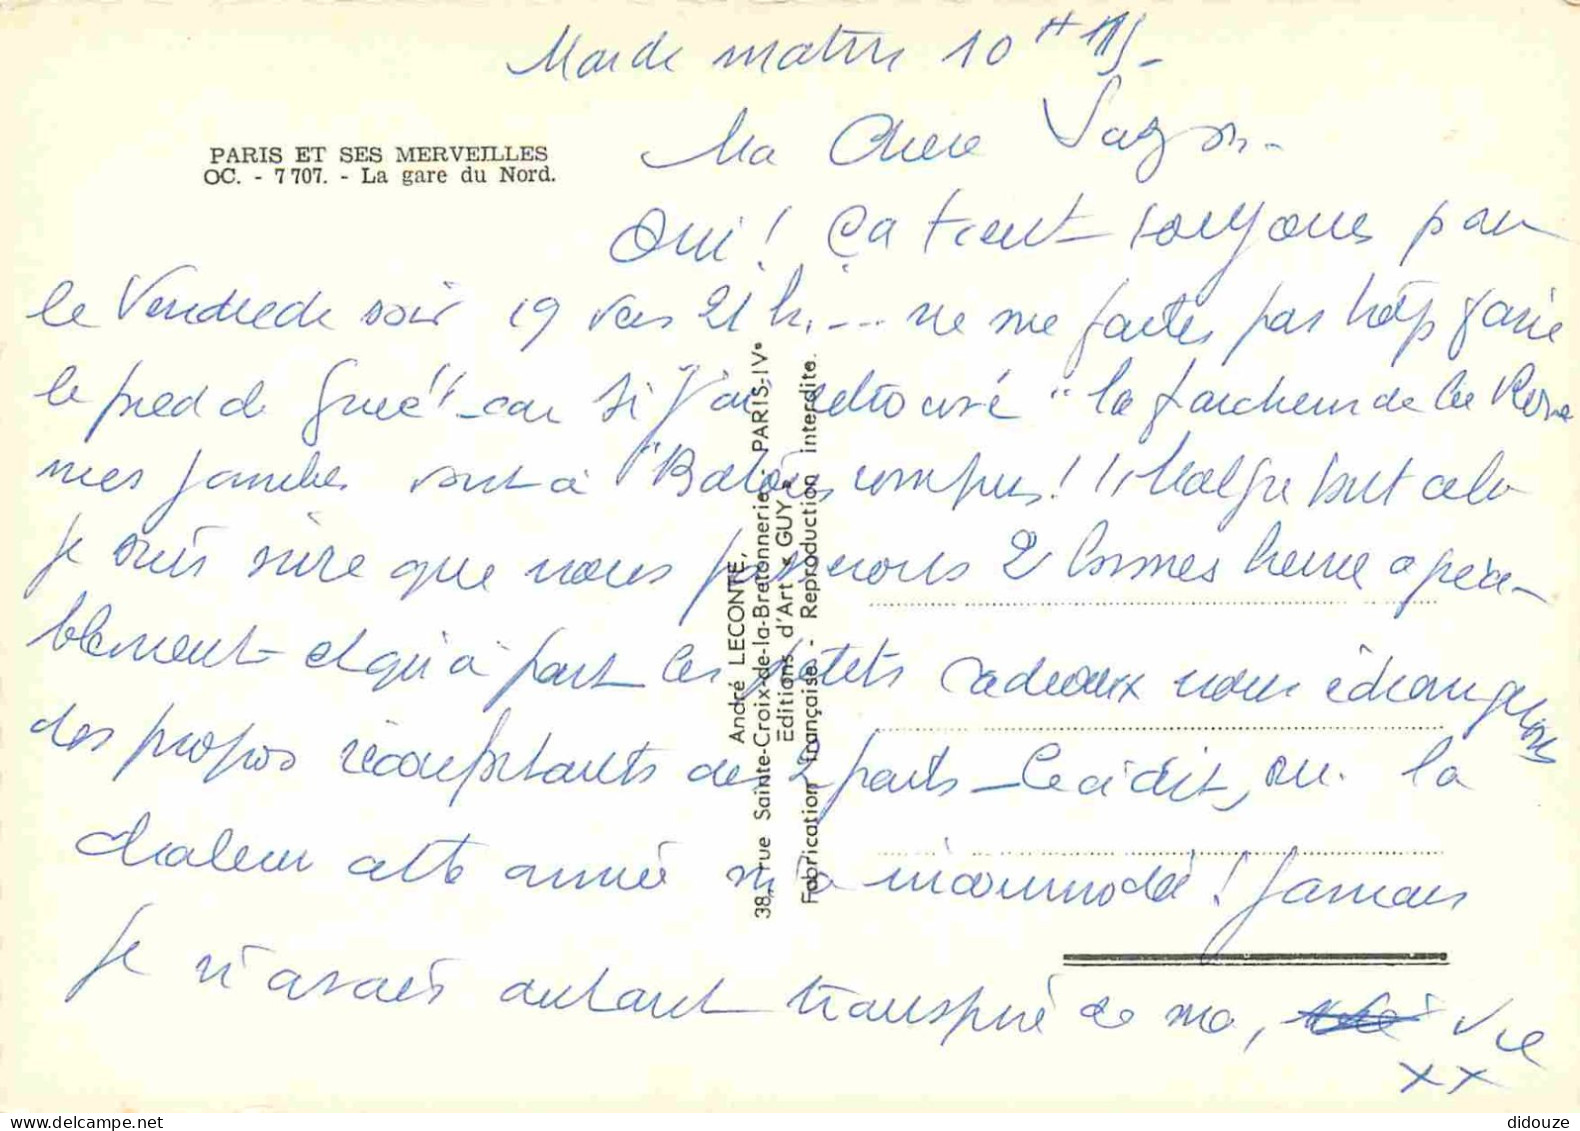 Mardi matin 10 H
PARIS ET SES MERVEILLES
OC. - 7707. - La gare du Nord.
Ma Chère
Oui ! Ça tient toujours pour
le Vendredi soir 19 vers 21 h. --- ne me faites pas trop faire
le pied de grue" - car si j'ai retrouvé "la fraicheur de la Rose
mes jambes sont à "Balais rompus ! " Malgré tout cela
je suis sûre que nous passerons 2 bonnes heures agréa-
blement - et qu'à part les petits cadeaux nous échangerons
des propos réconfortants des 2 parts - Ceci dit, ou la
chaleur cette année m'a incommodée ! Jamais
je n'avais autant transpiré de ma, vie
xx
André LECONTE,
38, rue Sainte-Croix-de-la-Bretonnerie - PARIS-IVe
Editions d'Art « GUY »
Fabrication Française - Reproduction interdite.
didouze